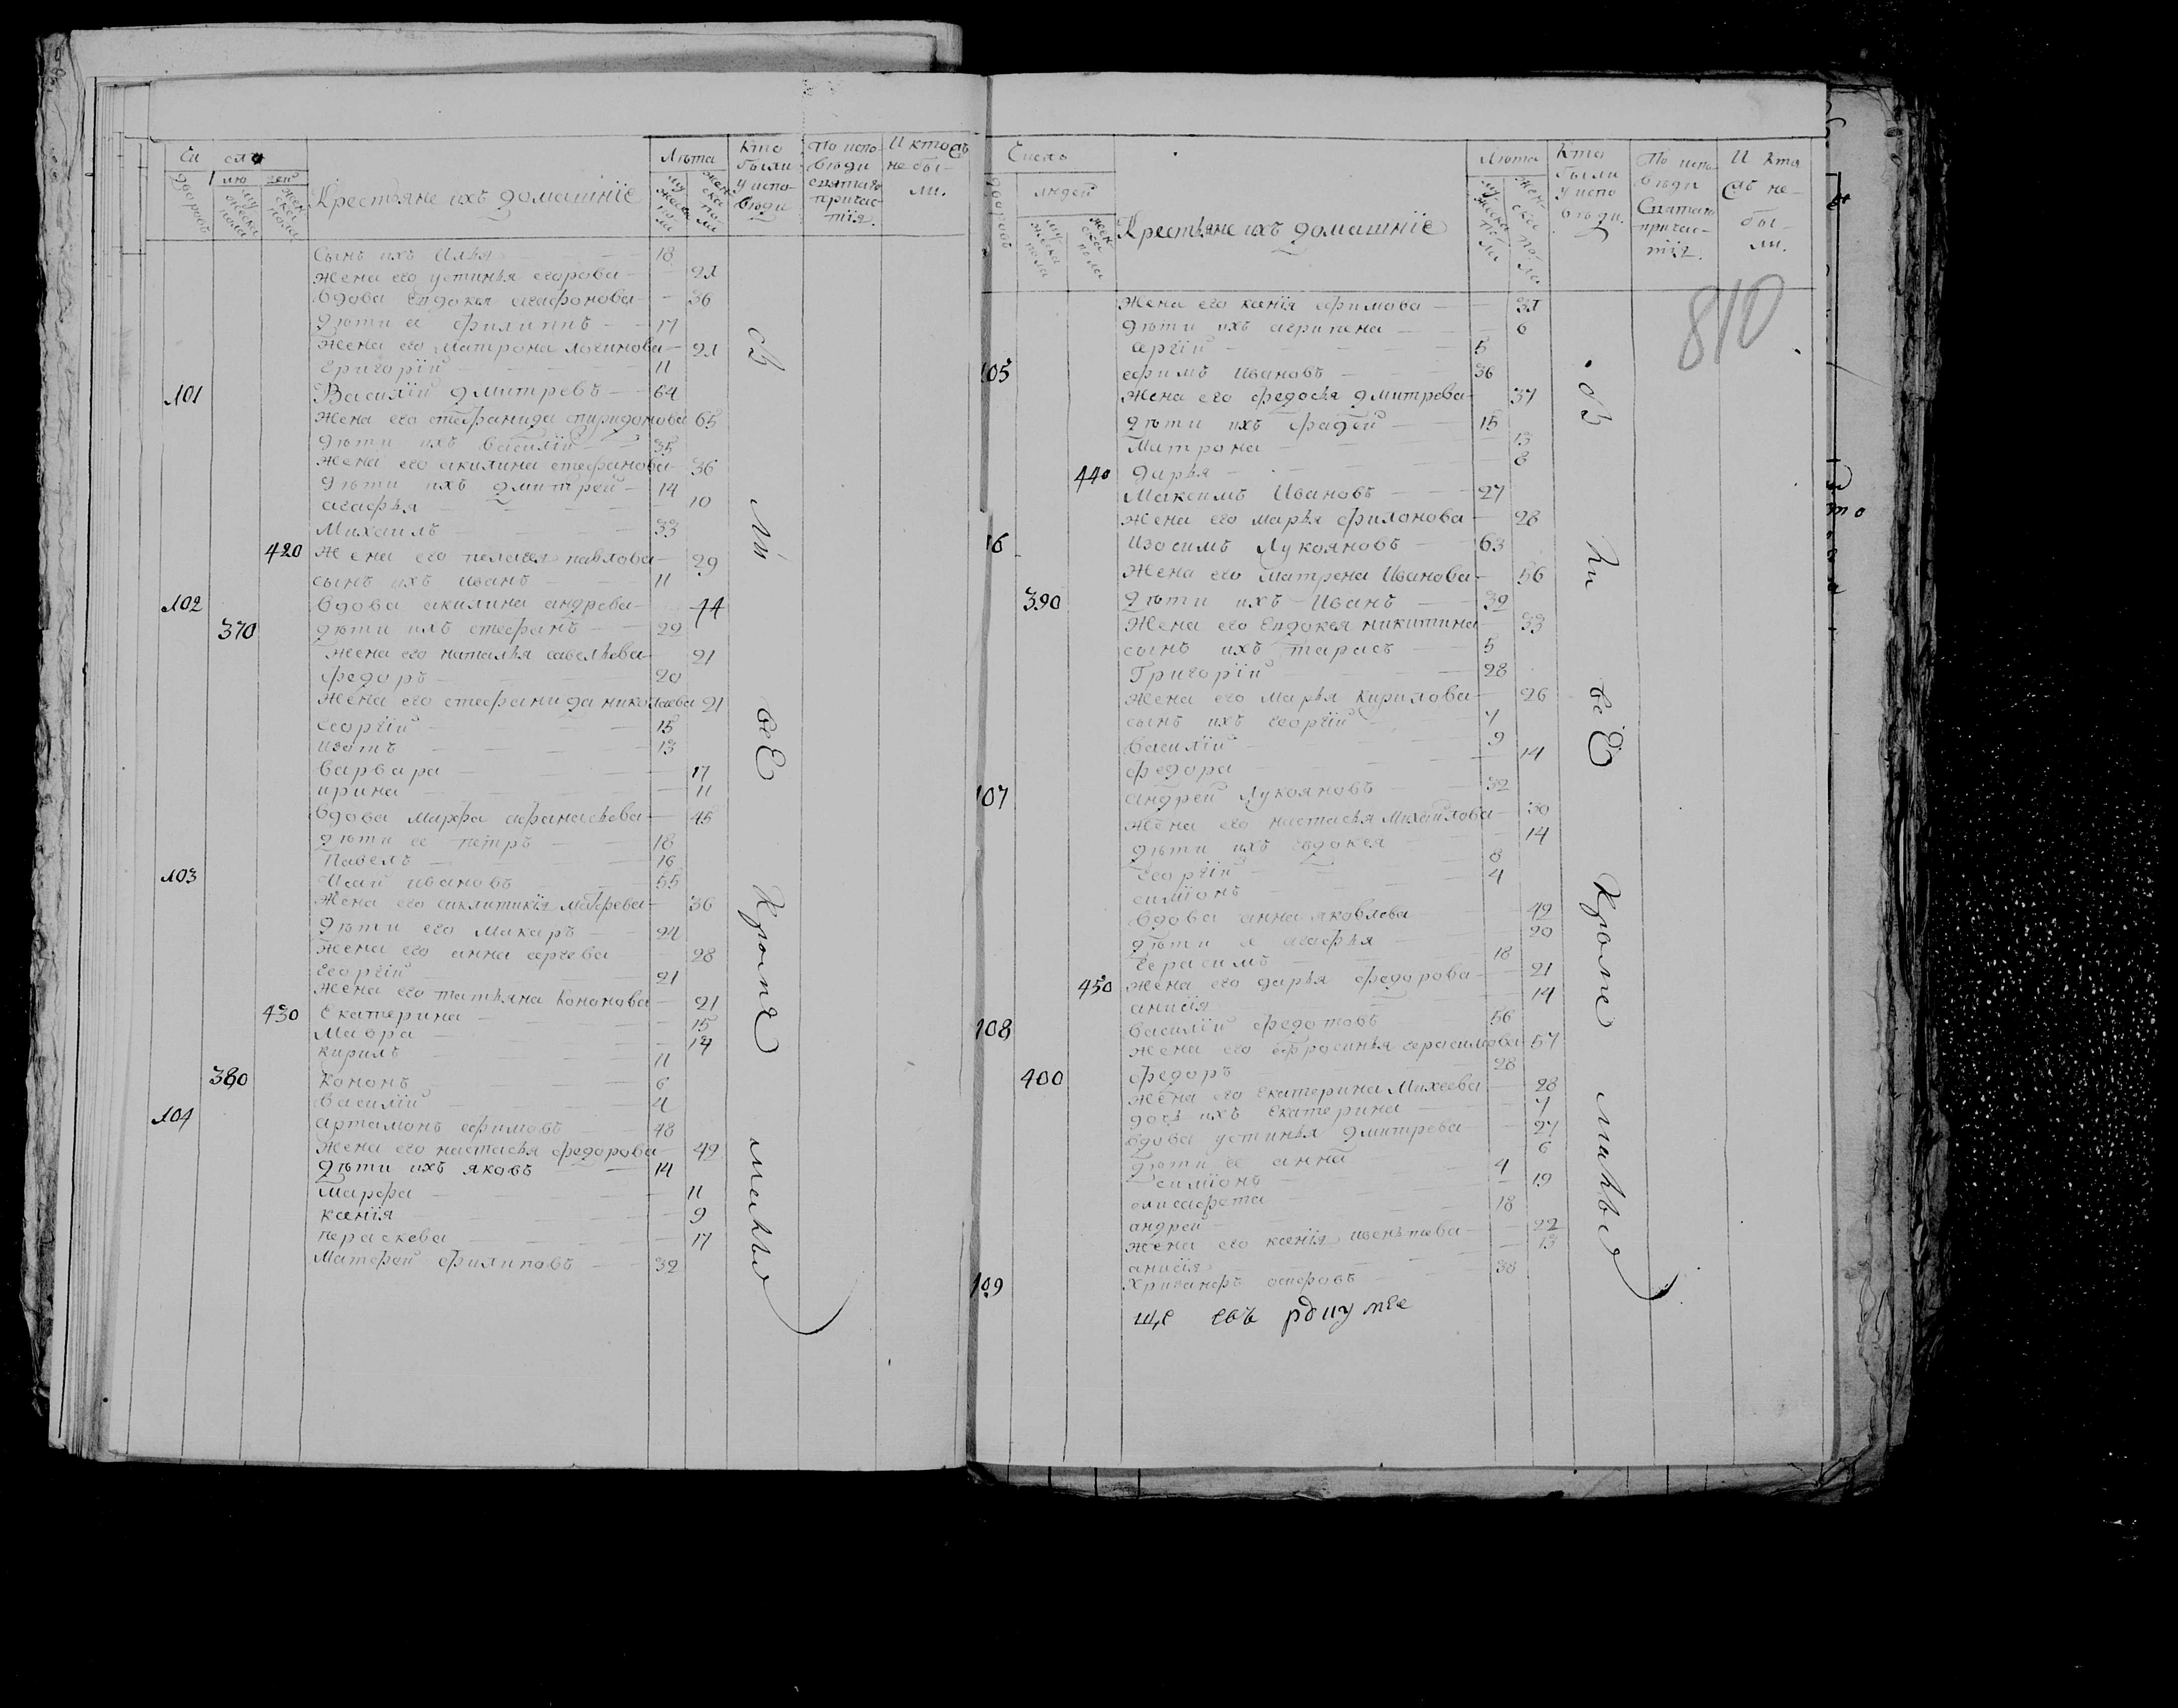 Число
Лѣта
Кто
были
у испо-
вѣди
По испо-
вѣди
святаго
причас-
тія.
И кто съ
не бы-
ли.
дворовъ
людей
мужеска пола
женска пола
Крестьяне ихъ домашніе
Сынъ ихъ Илья 18
жена его устинья егорова 21
вдова Евдокея агафонова 36
дѣти ее филиппъ 17
жена его матрона логинова 21
Григорій 11
101 Василій дмитревъ 64
жена его стефанида спиридонова 65
дѣти ихъ василій 35
жена его акилина стефанова 36
дѣти ихъ дмитрей 14
агафья 10
Михаилъ 33
420 жена его пелагея павлова 29
сынъ ихъ иванъ 11
102 вдова акилина андрева 44
370 дѣти ихъ стефанъ 29
жена его наталья савельева 21
федоръ 20
жена его стефанида николаева 21
георгій 15
изотъ 13
варвара 17
ирина 11
вдова марфа афанасьева 45
дѣти ее петръ 18
Павелъ 16
103 Исай ивановъ 55
жена его сиклитикія матфева 36
дѣти его макаръ 24
жена его анна сергева 28
георгій 21
жена его татьяна кононова 21
430 Екатерина 15
мавра 14
кирилъ 11
380 кононъ 6
василій 4
104 артамонъ ефимовъ 48
жена его настасья федорова 49
дѣти ихъ яковъ 14
марфа 11
ксенія 9
параскева 17
матфей филиповъ 32
Число
дворовъ
людей
мужеска пола
женска пола
Крестьяне ихъ домашніе
Лѣта
Кто
были
у испо
вѣди.
По испо-
вѣди
святаго
причас-
тія.
И кто
съ не-
бы-
ли.
810
жена его ксенія ефимова 31
дѣти ихъ агрипена 6
сергій 5
105 ефимъ ивановъ 36
жена его федосья дмитрева 37
дѣти ихъ фадей 15
матрона 13
440 дарья 8
Максимъ Ивановъ 27
жена его марья филонова 28
16 Изосимъ Лукояновъ 63
жена его матрена Иванова 56
390 дѣти ихъ Иванъ 32
жена его Евдокея никитина 33
сынъ ихъ тарасъ 5
Григорій 28
жена его марья кирилова 26
сынъ ихъ георгій 7
василій 9
федора 14
107 андрей лукояновъ 32
жена его настасья михайлова 30
дѣти ихъ евдокея 14
георгій 8
симіонъ 4
вдова анна яковлева 49
дѣти я агафья 20
герасимъ 18
450 жена его дарья федорова 21
анисія 14
108 василій федотовъ 56
жена его ефросинья герасимова 57
400 федоръ 28
жена его екатерина михеева 28
дочь ихъ екатерина 7
вдова устинья дмитрева 27
дѣти ее анна 6
симіонъ 4
елисафета 19
андрей 18
жена его ксенія 22
анисія 13
109 Хрисанфъ осиповъ 38